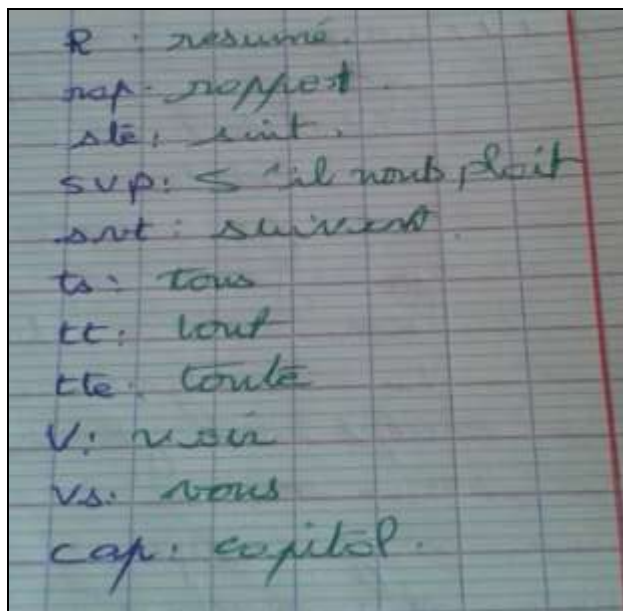 R : resumé.
rap : rapport.
ste : suit.
SVP : S'il vous plait
svt : suivent.
ts : tous
tt : tout
tte : toute
V : voir
vs : vous
cap : capital.